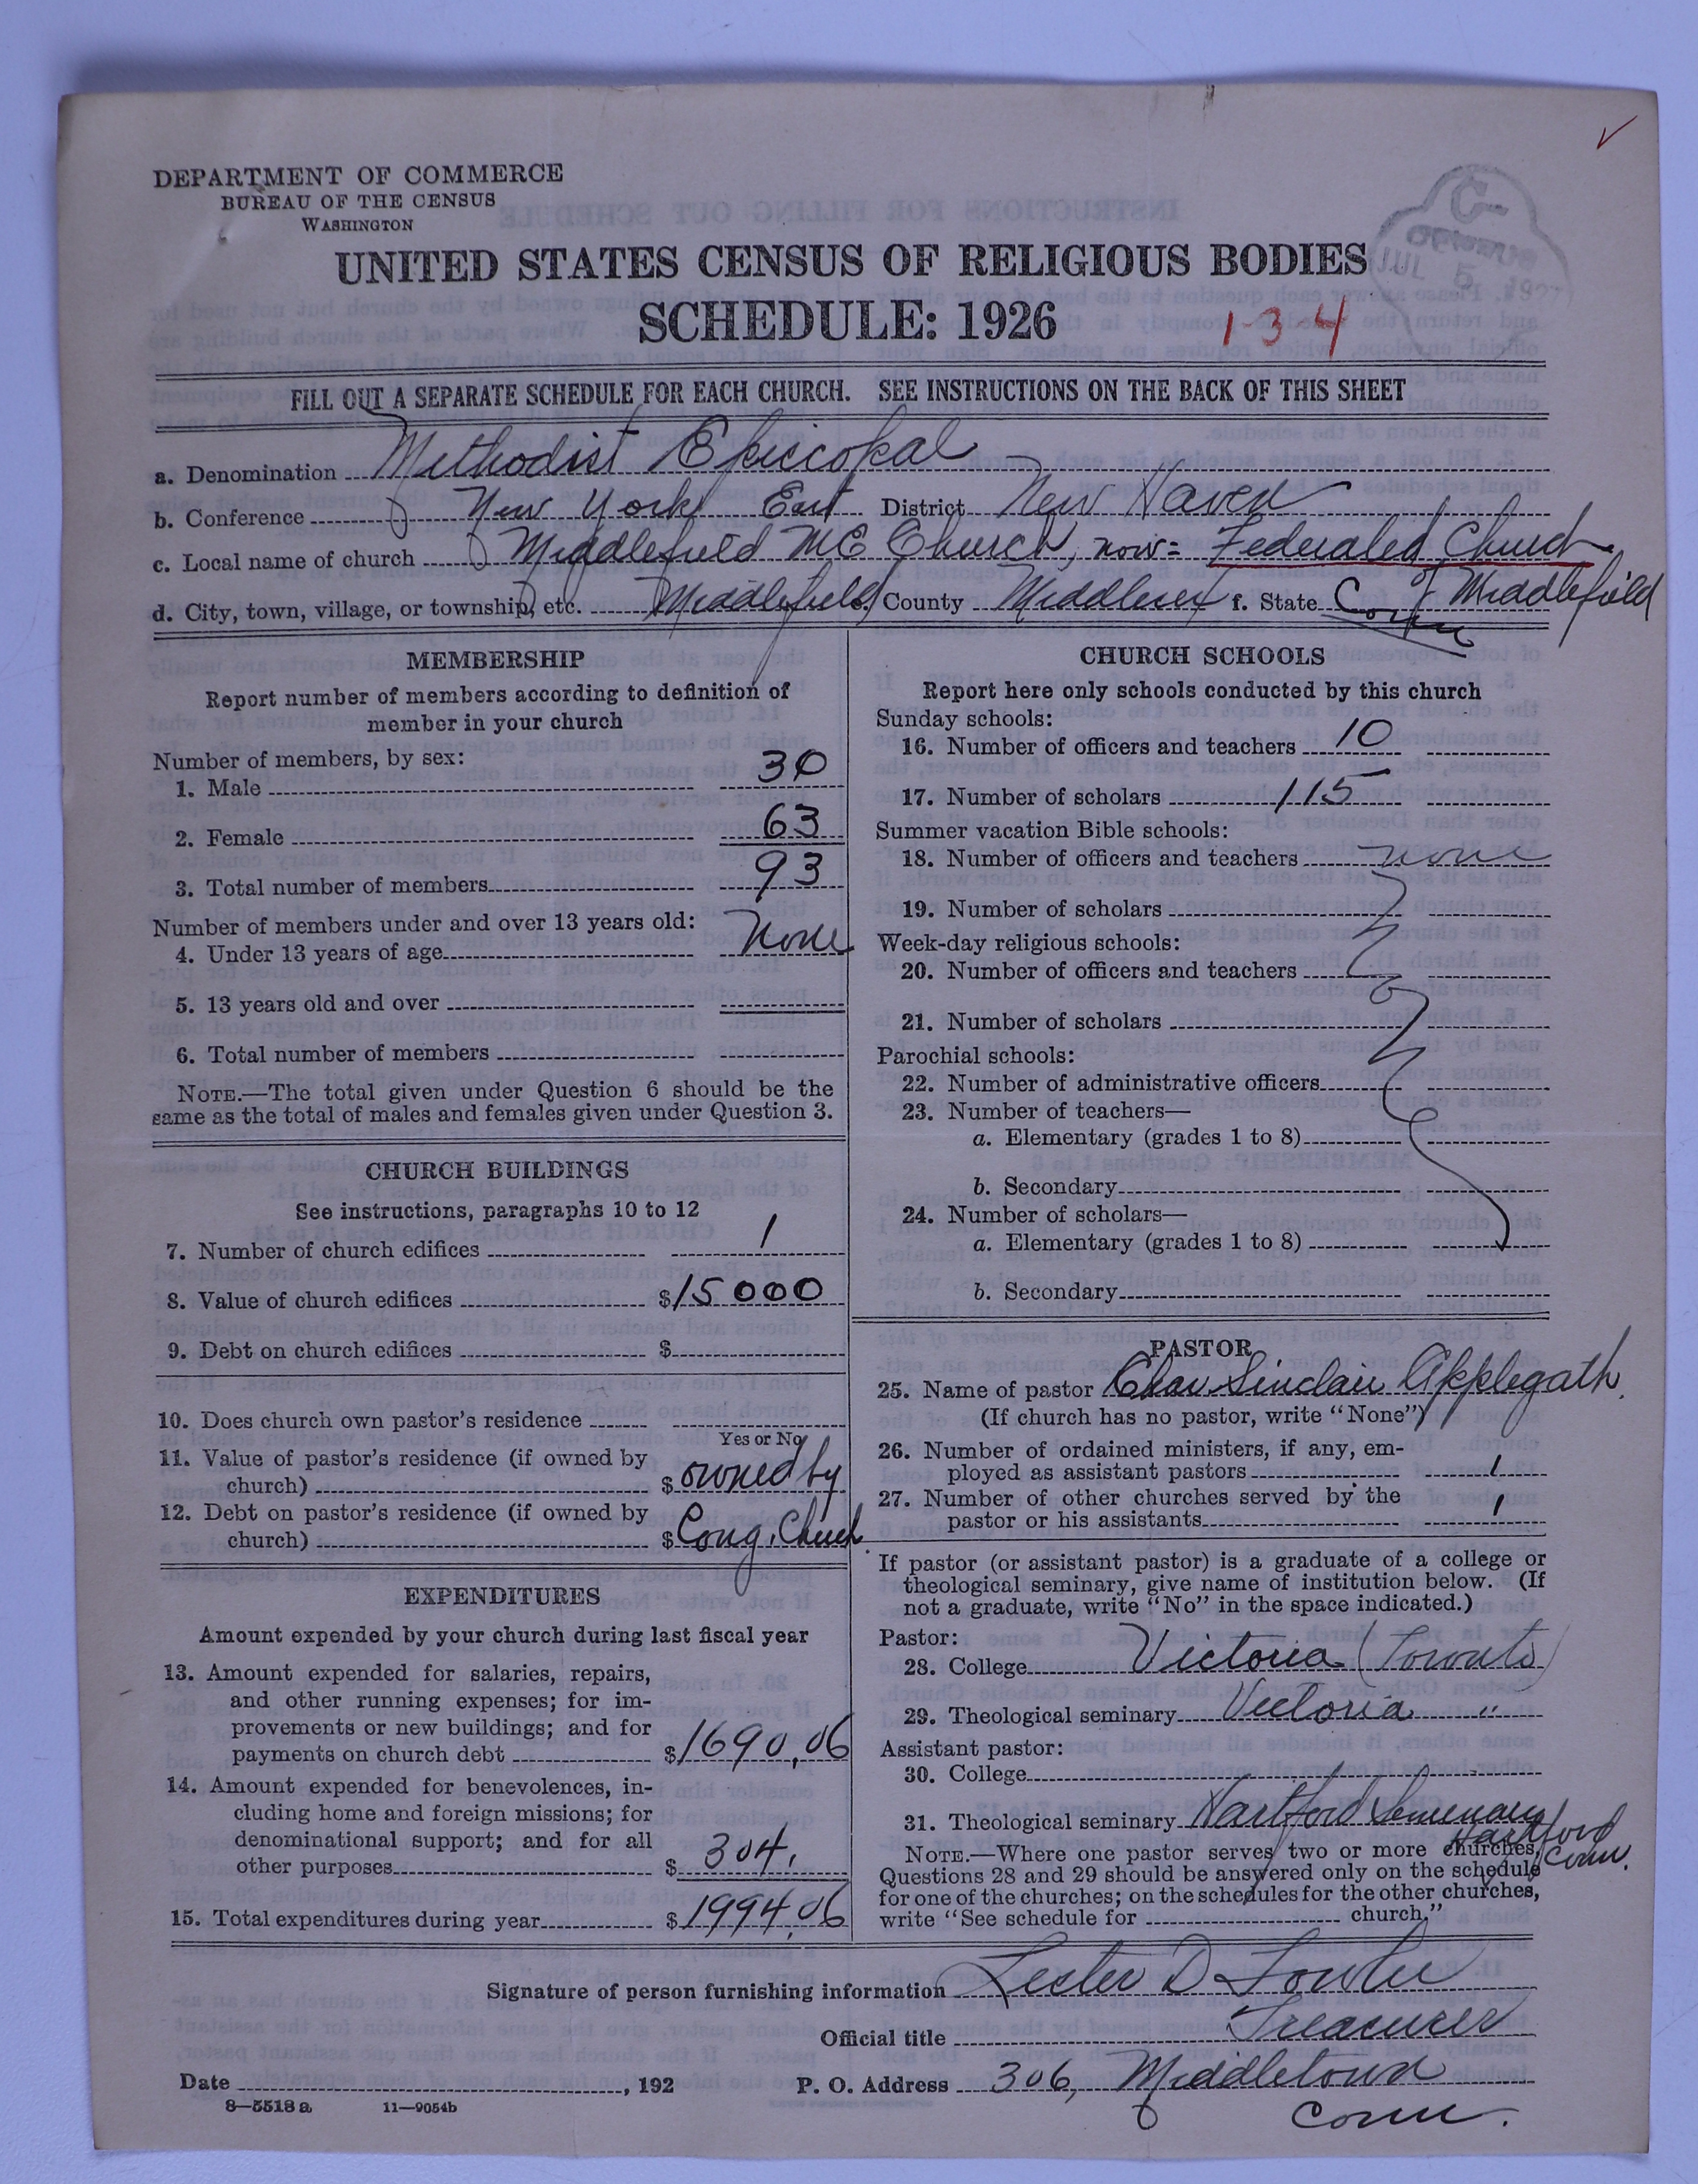 DEPARTMENT OF COMMERCE
BUREAU OF THE CENSUS
WASHINGTON
UNITED STATES CENSUS OF RELIGIOUS BODIES
SCHEDULE: 1926
JUL 5 1927
1-3-4
FILL OUT A SEPARATE SCHEDULE FOR EACH CHURCH. SEE INSTRUCTIONS ON THE BACK OF THIS SHEET
a. Denomination Methodist Episcopal
b. Conference New York East District New Haven
c. Local name of church Middlefield M E Church, now = Federated Church
of Middlefield
d. City, town, village, or township, etc. Middlefield e. County Middlesex f. State Conn
MEMBERSHIP
Report number of members according to definition of
member in your church
Number of members, by sex:
1. Male 30
2. Female 63
3. Total number of members 93
Number of members under and over 13 years old:
4. Under 13 years of age None
5. 13 years old and over
6. Total number of members
NOTE.—The total given under Question 6 should be the
same as the total of males and females given under Question 3.
CHURCH BUILDINGS
See instructions, paragraphs 10 to 12
7. Number of church edifices 1
8. Value of church edifices $15000
9. Debt on church edifices $
10. Does church own pastor's residence
Yes or No
11. Value of pastor's residence (if owned by
church) $ owned by
12. Debt on pastor's residence (if owned by
church) $ Cong. Church
EXPENDITURES
Amount expended by your church during last fiscal year
13. Amount expended for salaries, repairs,
and other running expenses; for im-
provements or new buildings; and for
payments on church debt $1690.06
14. Amount expended for benevolences, in-
cluding home and foreign missions; for
denominational support; and for all
other purposes $ 304.
15. Total expenditures during year $1994.06
CHURCH SCHOOLS
Report here only schools conducted by this church
Sunday schools:
16. Number of officers and teachers 10
17. Number of scholars 115
Summer vacation Bible schools:
18. Number of officers and teachers none
19. Number of scholars
Week-day religious schools:
20. Number of officers and teachers
21. Number of scholars
Parochial schools:
22. Number of administrative officers
23. Number of teachers—
a. Elementary (grades 1 to 8)
b. Secondary
24. Number of scholars—
a. Elementary (grades 1 to 8)
b. Secondary
PASTOR
25. Name of pastor Chas Sinclair Applegath
(If church has no pastor, write "None")
26. Number of ordained ministers, if any, em-
ployed as assistant pastors 1
27. Number of other churches served by the
pastor or his assistants 1
If pastor (or assistant pastor) is a graduate of a college or
theological seminary, give name of institution below. (If
not a graduate, write "No" in the space indicated.)
Pastor:
28. College Victoria (Toronto)
29. Theological seminary Victoria "
Assistant pastor:
30. College
31. Theological seminary Hartford Seminary
Hartford
Conn.
NOTE.—Where one pastor serves two or more churches,
Questions 28 and 29 should be answered only on the schedule
for one of the churches; on the schedules for the other churches,
write "See schedule for church."
Signature of person furnishing information Lester D Fowler
Official title Treasurer
Date , 192 P. O. Address 306, Middletown
Conn.
8—5518 a 11—9054b